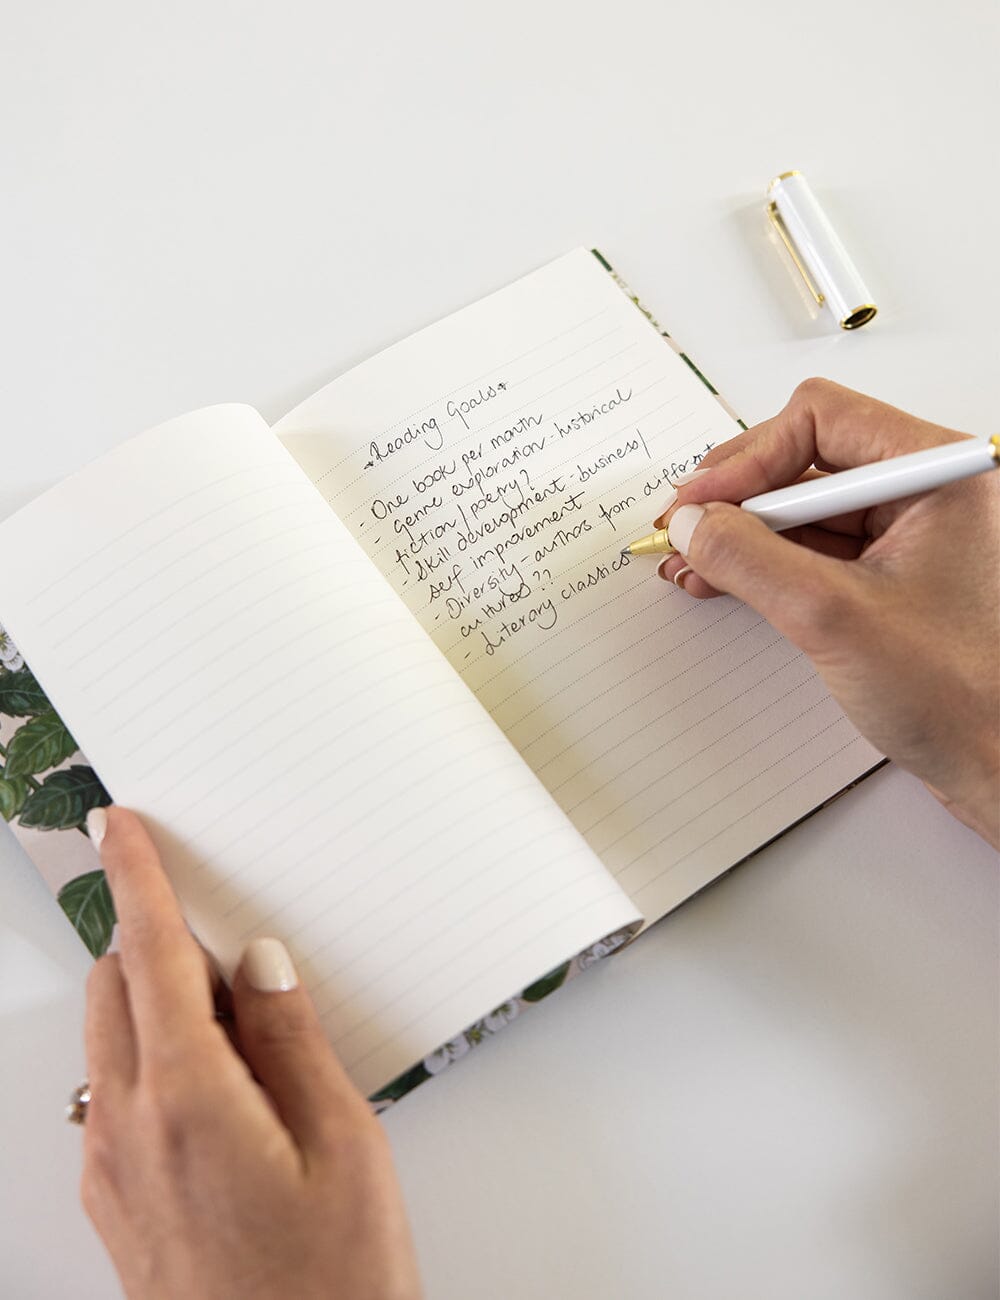 *Reading Goals*
- One book per month
- genre exploration - historical
fiction / poetry?
- Skill development - business/
self improvement
- Diversity - authors from different
cultures??
- Literary classics